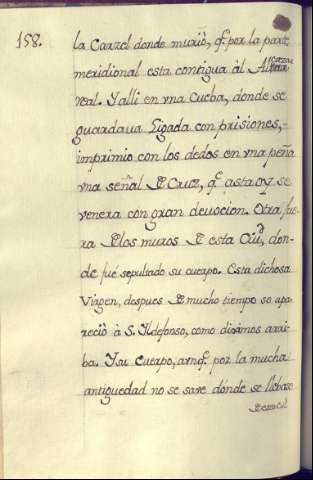 158.
la Carzel donde murió, q̃ por la parte
meridional esta contigua àl Alcazar
real. Y alli en vna Cueba, donde se
guardava Ligada con prisiones,-
imprimio con los dedos en vna peña
vna señal de Cruz, q̃ asta oy se
venera con gran devocion. Otra fue-
ra de los muros de esta Ciud, don-
de fue sepultado su cuerpo. Esta dichosa
Virgen, despues de mucho tiempo se apa-
reciò à S. Ildefonso, como diximos arri-
ba. Y su cuerpo, avnq̃ por la mucha
antiguedad no se save dònde se llebase